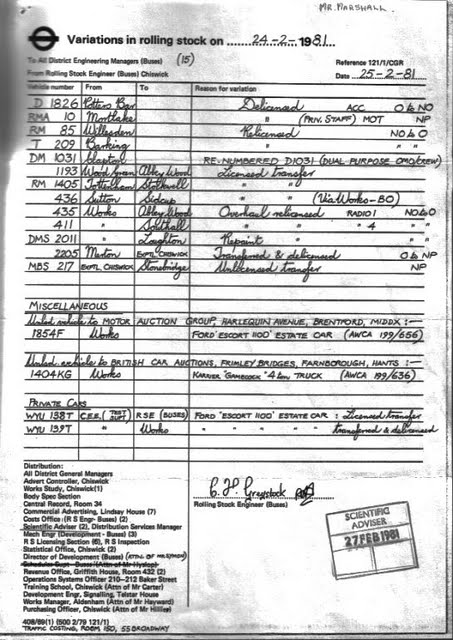 MR. MARSHALL.
Variations in rolling stock on 24-2-1981.
To All District Engineering Managers (Buses) (15)
Reference 121/1/CGR
From Rolling Stock Engineer (Buses) Chiswick
Date 25-2-81
Vehicle number From To Reason for variation
D 1826 Potters Bar Delicensed ACC O & NO
RMA 10 Mortlake " (PRIV. STAFF) MOT NP
RM 85 Willesden Relicensed NO & O
T 209 Barking " " "
DM 1031 Clapton RE-NUMBERED D1031 (DUAL PURPOSE OMO/CREW)
1193 Wood Green Abbey Wood Licensed transfer
RM 1405 Tottenham Stockwell " "
436 Sutton Sidcup " " (Via Works-BO)
435 Works Abbey Wood Overhaul relicensed RADIO 1 NO & O
411 " Southall " " " 4 " "
DMS 2011 " Loughton Repaint " " "
2205 Merton EXPTL CHISWICK Transferred & delicensed O & NP
MBS 217 EXPTL CHISWICK Stonebridge Unlicensed transfer NP
MISCELLANEOUS
Unlsd vehicle to MOTOR AUCTION GROUP, HARLEQUIN AVENUE, BRENTFORD, MIDDX :-
1854F Works FORD 'ESCORT 1100' ESTATE CAR (AWCA 199/656)
Unlsd. vehicle to BRITISH CAR AUCTIONS, FRIMLEY BRIDGES, FARNBOROUGH, HANTS :-
1404KG Works KARRIER 'GAMECOCK' 4 ton TRUCK (AWCA 199/636)
PRIVATE CARS
WYU 138T C.E.E. (TEST DEPT) RSE (BUSES) FORD 'ESCORT 1100' ESTATE CAR : Licensed transfer
WYU 139T " Works " " " " transferred & delicensed
Distribution:
All District General Managers
Advert Controller, Chiswick
Works Study, Chiswick(1)
Body Spec Section
Central Record, Room 34
Commercial Advertising, Lindsay House (7)
Costs Office: (R S Engr- Buses) (2)
Scientific Adviser (2), Distribution Services Manager
Mech Engr (Development- Buses) (3)
R S Licensing Section (6), R S Inspection
Statistical Office, Chiswick (2)
Director of Development (Buses)
Scheduler Supt- Buses (Attn of Mr Hyslop)
Revenue Office, Griffith House, Room 432 (2)
Operations Systems Officer 210-212 Baker Street
Training School, Chiswick (Attn of Mr Carter)
Development Engr, Signalling, Telstar House
Works Manager, Aldenham (Attn of Mr Hayward)
Purchasing Officer, Chiswick (Attn of Mr Hillier)
408/89(1) (500 2/79 121/1)
TRAFFIC COSTING, ROOM 150, 55 BROADWAY
Rolling Stock Engineer (Buses)
SCIENTIFIC
ADVISER
27 FEB 1981